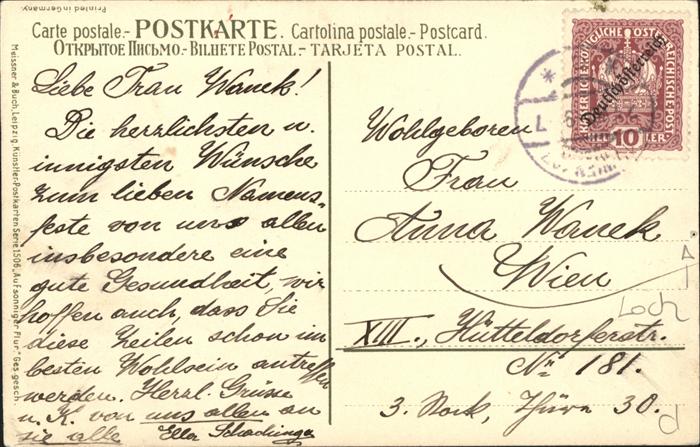 Carte postale.- POSTKARTE. Cartolina postale.- Postcard.
ОТКРЫТОЕ ПИСЬМО.- BILHETE POSTAL.- TARJETA POSTAL.
Printed in Germany.
Meissner & Buch, Leipzig. Künstler-Postkarten Serie 1506. „Auf sonniger Flur“ Ges. gesch.
Liebe Frau Wanek!
Die herzlichsten u.
innigsten Wünsche
zum lieben Namens-
feste von uns allen
insbesondere eine
gute Gesundheit, wir
hoffen auch, dass Sie
diese Zeilen schon im
besten Wohlsein antreffen
werden. Herzl. Grüsse
u. K. von uns allen an
sie alle Ella Schachinger
KAISERLICHE KÖNIGLICHE ÖSTERREICHISCHE POST
Deutschösterreich
10 HELLER
7
Wohlgeboren
Frau
Anna Wanek
Wien
Loch
XIII., Hütteldorferstr.
No 181.
3. Stock, Thüre 30.